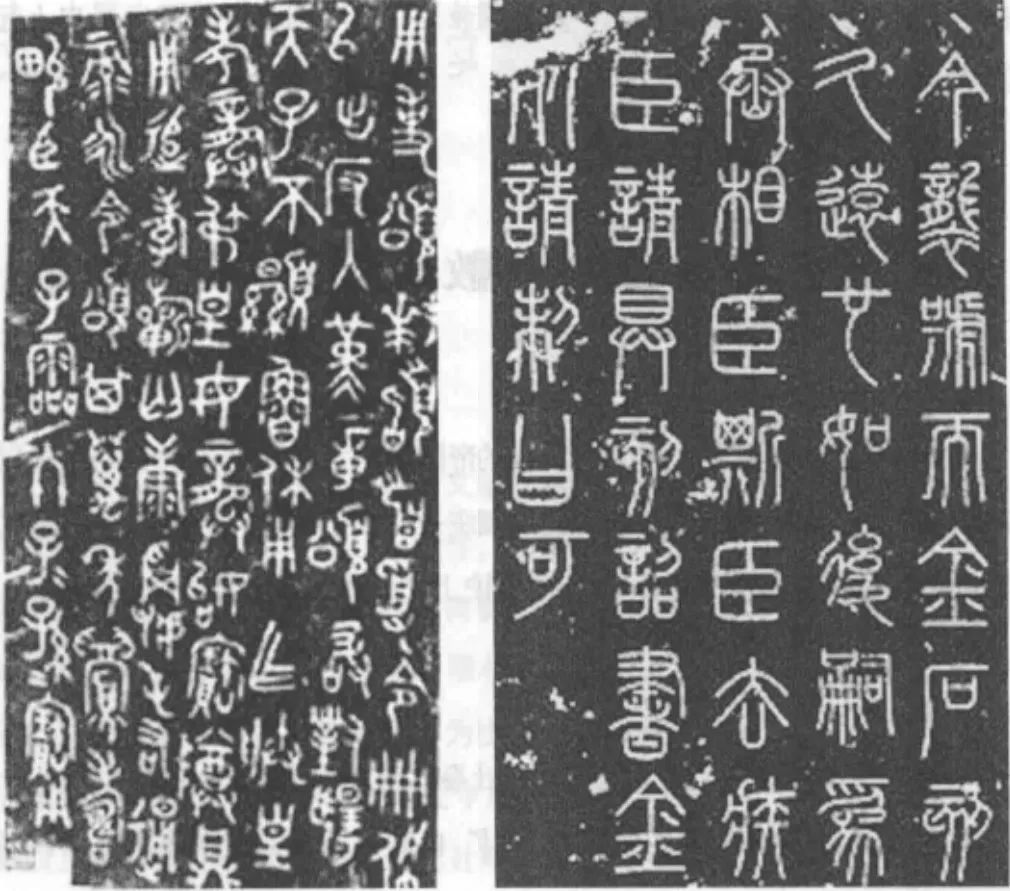 用事頌拜𩒨首受令冊佩
以出反入堇章頌敢對揚
天子不顯魯休用乍朕皇
考龏弔皇母龏始寶尊鼎
用追孝祈匄康𩛥屯右通
彔永令頌其萬年眉壽
畯臣天子霝冬子子孫孫寶用
今襲號而金石刻
久遠也如後嗣為
丞相臣斯臣去疾
臣請具刻詔書金
請制曰可